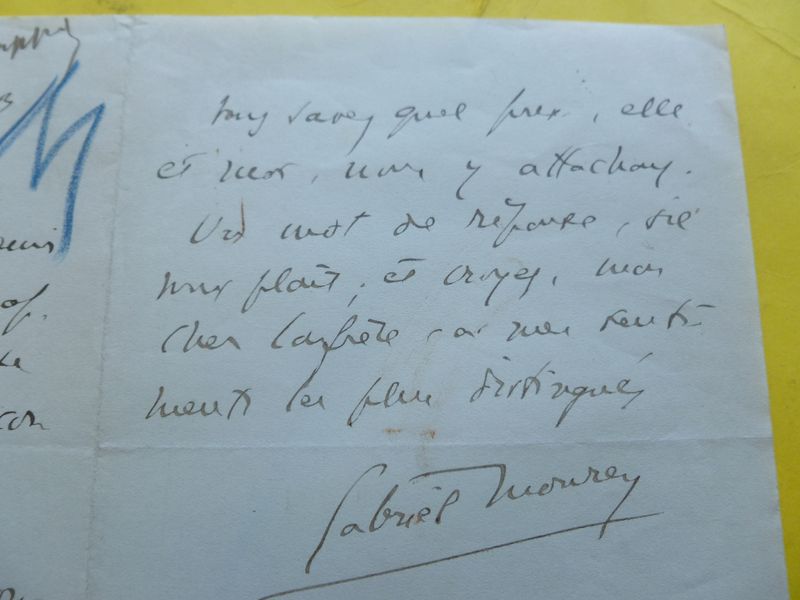 vous savez quel prix, elle
et moi, nous y attachons.
Un mot de réponse, s'il
vous plaît, et croyez, mon
cher Confrère, à mes senti-
ments les plus distingués
Gabriel Mourey